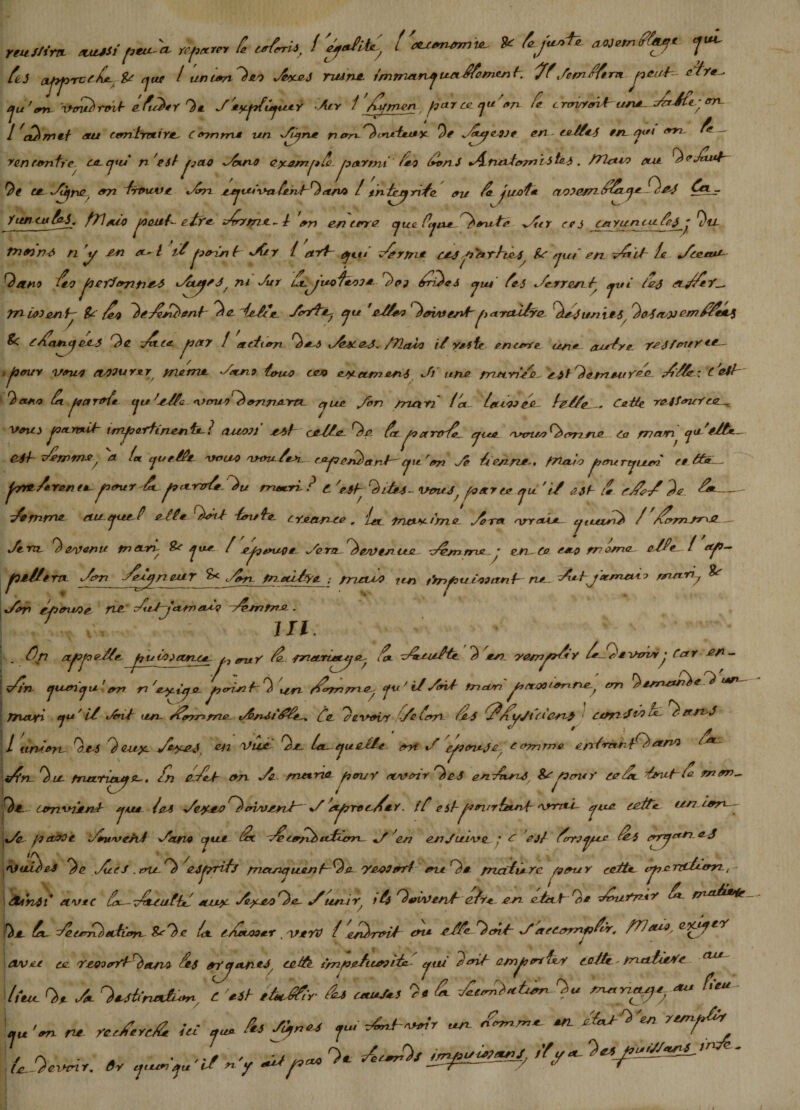 reussira aussi peu a reparer le coloris, l'egalité, l'œconomie & le juste assemblage qui
les approche & que l'union des sexes ruine immanquablement. Il semblera peut-etre
qu'on voudroit eluder de s'expliquer sur l'hymen parce qu'on le croiroit une fable; on
l'admet au contraire comme un signe non douteux de sagesse en celles en qui on le
rencontre ce qui n'est pas sans exemple parmi les bons Anatomistes. Mais au defaut
de ce signe on trouve son equivalent dans l'integrité ou le juste assemblage des Ca-
runcules. Mais peut-etre forme-t-on encore quelque doute sur ces caruncules; du
moins n'y en a-t-il point sur l'art qui forme ces parties, & qui en fait le sceau
dans les personnes sages, ni sur la justesse des brides qui les serrent, qui les affer-
missent & les defendent de telle sorte, qu'elles doivent paraître desunies, desassemblées
& changées de face par l'action des sexes. Mais il reste encore une autre ressource
pour vous assurer meme sans tous ces examens si une mariée est demeurée fille: c'est
dans la parole qu'elle vous donnera que son mari l'a laissée telle. Cette ressource
vous parait impertinente? aussi est celle de la parole que vous donne ce mari qu'elle
est femme, a la quelle vous voulez cependant qu'on se tienne. Mais pourquoi cette
preference pour la parole du mari? c'est dites-vous, parce qu'il est le chef de la
femme au quel elle doit toute creance. La maxime sera vraie quand l'homme
sera devenu mari & que l'epouse sera devenue femme; en ce cas meme elle l'ap-
pellera son seigneur & son maître: mais un impuissant ne fut jamais mari, &
son epouse ne fut jamais femme.
III.
On appelle puissance pour le mariage, la faculté d'en remplir le devoir; car en-
fin quoiqu'on n'exige point d'un homme, qu'il soit mari passionné, on demande d'un
mari qu'il soit un homme sensible. Ce devoir (selon les Physiciens) consiste dans
l'union des deux sexes en vue de la quelle on s'epouse, comme entrant dans la
fin du mariage. En efet on se marie pour avoir des enfans, & pour cela tout le mon-
de convient que les sexes doivent s'aprocher. Il est pourtant vrai que cette union
se passe souvent sans que la fecondation s'en ensuive; c'est lorsque les organes
vuides de sucs ou d'esprits manquent de ressort ou de matiere pour cette operation.
Ainsi avec la faculté aux sexes de s'unir, ils doivent etre en etat de fournir la matiere
de la fecondation & de la chasser vers l'endroit où elle doit s'accomplir. Mais exiger
avec ce ressort dans les organes, cette impetuosité qui doit emporter cette matiere au
lieu de sa destination c'est etablir les causes de la fecondation du mariage, au lieu
qu'on ne recherche ici que les signes qui font voir un homme en etat d'en remplir
le devoir. Or quoiqu'il n'y ait pas de feconds impuissans, il y a des puissans infe-